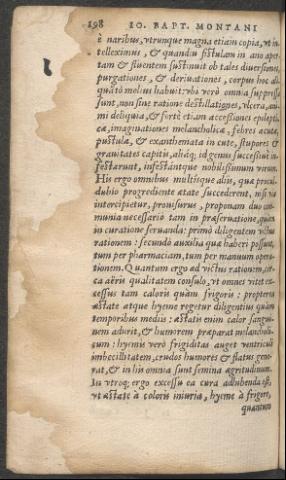 198 IO. BAPT. MONTANI
è naribus, vtrunque magna etiam copia, vt in-
telleximus, & quandiu fistulam in ano aper-
tam & fluentem sustinuit ob tales diuersiones,
purgationes, & deriuationes, corpus hoc ali-
quãtò melius habuit: vbi verò omnia suppressa
sunt, non sine ratione destillationes, vlcera, ani-
mi deliquia, & fortè etiam accessiones epilepti-
cæ, imaginationes melancholicæ, febres acutæ,
pustulæ, & exanthemata in cute, stupores &
grauitates capitis, aliáq; id genus successiuè in-
festarunt, infestántque nobilissimum virum.
His ergo omnibus multísque aliis, quæ procul-
dubio progrediente ætate succederent, nisi via
intercipietur, prouisurus, proponam duo com-
munia necessariò tam in præseruatione, quàm
in curatione seruanda: primò diligentem victus
rationem: secundò auxilia quæ haberi possunt,
tum per pharmaciam, tum per manuum opera-
tionem. Quantum ergo ad victus rationem, cir-
ca aëris qualitatem consulo, vt omnes vitet ex-
cessus tam caloris quàm frigoris: propterea
æstate atque hyeme regetur diligentius quàm
temporibus mediis: æstatis enim calor sangui-
nem adurit, & humorem præparat melancholi-
cum: hyemis verò frigiditas auget ventriculi
imbecillitatem, crudos humores & flatus gene-
rat, & in his omnia sunt semina ægritudinum.
In vtroq; ergo excessu ea cura adhibenda est,
vt æstate à caloris iniuria, hyeme à frigore,
quantum